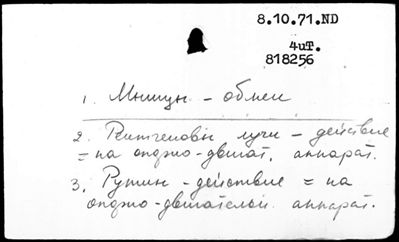 8.10.71.ND
4иТ.
818256
1. Мышцы - обмен
2. Рентгеновы лучи - действие
= на опорно-двигат. аппарат.
3. Рутин - действие = на
опорно-двигательн. аппарат.